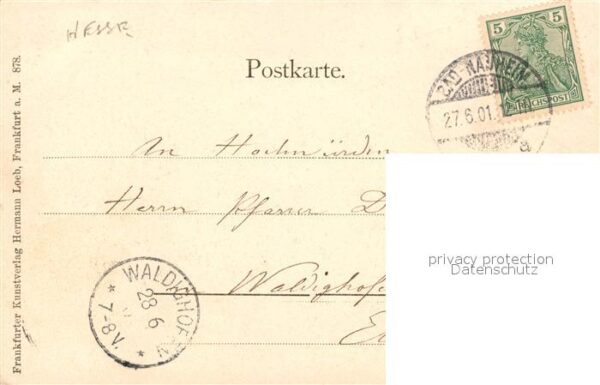 HESSE
Postkarte.
5 5
REICHSPOST
BAD-NAUHEIM
27.6.01.
a
An Hochwürden
Herrn Pfarrer D
Waldighofe
privacy protection
Datenschutz
WALDIGHOFEN
28 6
7-8V.
Frankfurter Kunstverlag Hermann Loeb, Frankfurt a. M. 878.